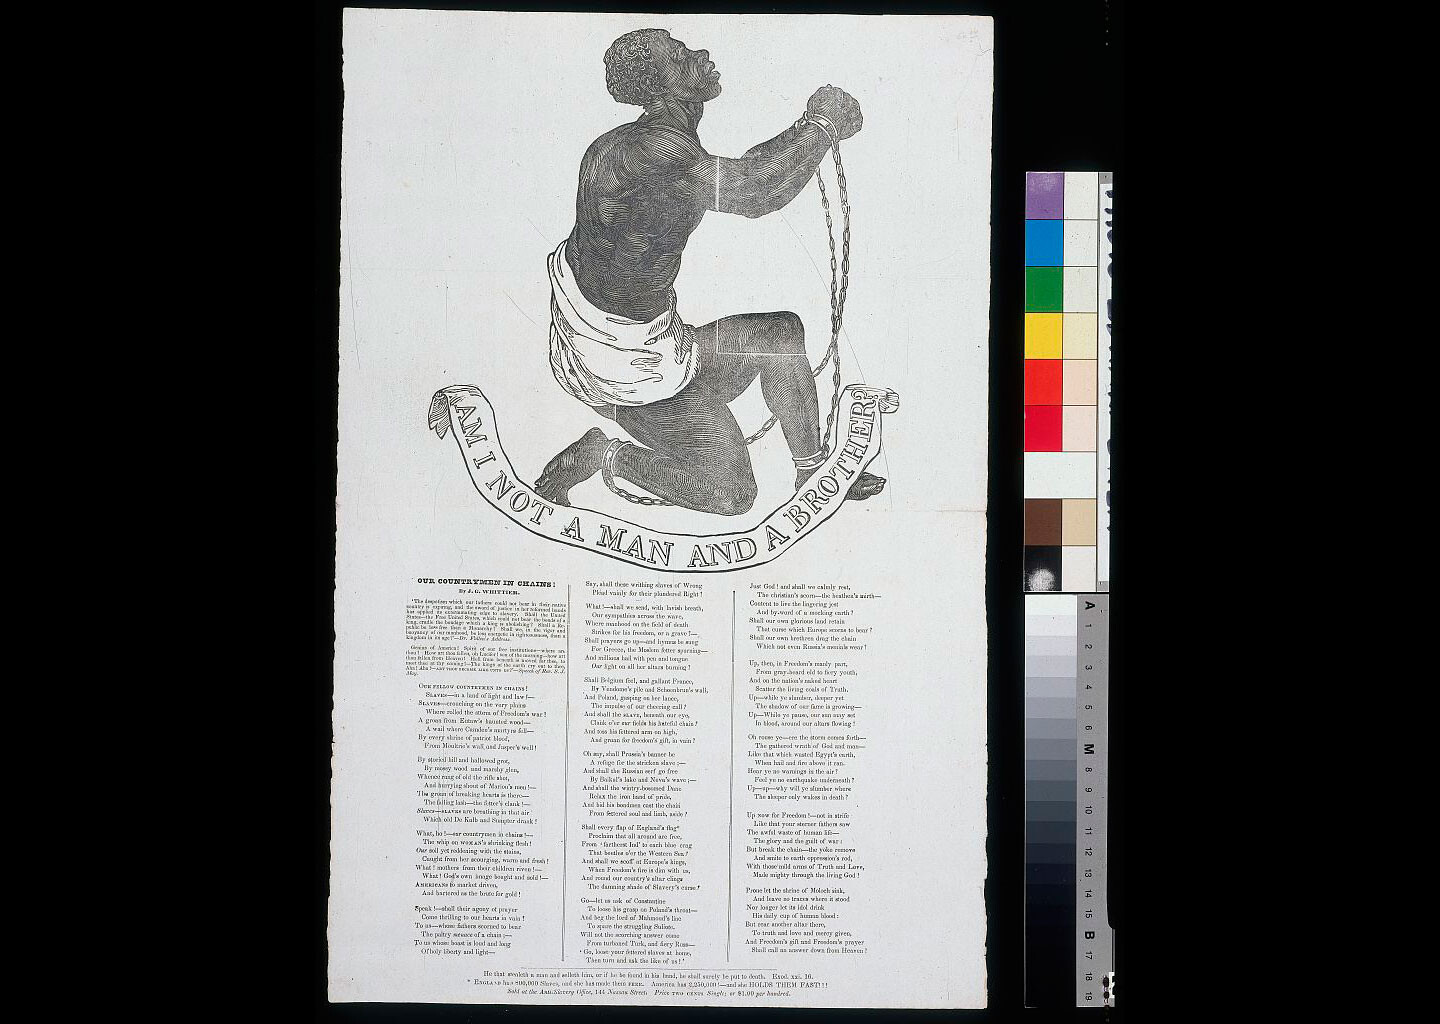 AM I NOT A MAN AND A BROTHER?
OUR COUNTRYMEN IN CHAINS!
BY J. G. WHITTIER.
'The despotism which our fathers could not bear in their native
country is expiring, and the sword of justice in her reformed hands
has applied its exterminating edge to slavery. Shall the United
States—the Free United States, which could not bear the bonds of a
king, cradle the bondage which a king is abolishing? Shall a Re-
public be less free than a Monarchy? Shall we, in the vigor and
buoyancy of our manhood, be less energetic in righteousness, than a
kingdom in its age?'—Dr. Follen's Address.
Genius of America! Spirit of our free institutions—where art
thou? How art thou fallen, oh Lucifer! son of the morning—how art
thou fallen from Heaven! Hell from beneath is moved for thee, to
meet thee at thy coming!—The kings of the earth cry out to thee,
Aha! Aha!—ART THOU BECOME LIKE UNTO US?'—Speech of Rev. S. J.
May.
OUR FELLOW COUNTRYMEN IN CHAINS!
SLAVES—in a land of light and law!—
SLAVES—crouching on the very plains
Where rolled the storm of Freedom's war!
A groan from Eutaw's haunted wood—
A wail where Camden's martyrs fell—
By every shrine of patriot blood,
From Moultrie's wall and Jasper's well!
By storied hill and hallowed grot,
By mossy wood and marshy glen,
Whence rang of old the rifle shot,
And hurrying shout of Marion's men!—
The groan of breaking hearts is there—
The falling lash—the fetter's clank!—
Slaves—SLAVES are breathing in that air
Which old De Kalb and Sumpter drank!
What, ho!—our countrymen in chains!—
The whip on WOMAN'S shrinking flesh!
Our soil yet reddening with the stains,
Caught from her scourging, warm and fresh!
What! mothers from their children riven!—
What! God's own image bought and sold!—
AMERICANS to market driven,
And bartered as the brute for gold!
Speak!—shall their agony of prayer
Come thrilling to our hearts in vain?
To us—whose fathers scorned to bear
The paltry menace of a chain;—
To us whose boast is loud and long
Of holy liberty and light—
Say, shall these writhing slaves of Wrong
Plead vainly for their plundered Right?
What!—shall we send, with lavish breath,
Our sympathies across the wave,
Where manhood on the field of death
Strikes for his freedom, or a grave?—
Shall prayers go up—and hymns be sung
For Greece, the Moslem fetter spurning—
And millions hail with pen and tongue
Our light on all her altars burning?
Shall Belgium feel, and gallant France,
By Vendome's pile and Schoenbrun's wall,
And Poland, gasping on her lance,
The impulse of our cheering call?
And shall the SLAVE, beneath our eye,
Clank o'er our fields his hateful chain?
And toss his fettered arm on high,
And groan for freedom's gift, in vain?
Oh say, shall Prussia's banner be
A refuge for the stricken slave;—
And shall the Russian serf go free
By Baikal's lake and Neva's wave;—
And shall the wintry-bosomed Dane
Relax the iron hand of pride,
And bid his bondmen cast the chain
From fettered soul and limb, aside?
Shall every flap of England's flag*
Proclaim that all around are free,
From 'farthest Ind' to each blue crag
That beetles o'er the Western Sea?
And shall we scoff at Europe's kings,
When Freedom's fire is dim with us,
And round our country's altar clings
The damning shade of Slavery's curse?
Go—let us ask of Constantine
To loose his grasp on Poland's throat—
And beg the lord of Mahmoud's line
To spare the struggling Suliote.
Will not the scorching answer come
From turbaned Turk, and fiery Russ—
'Go, loose your fettered slaves at home,
Then turn and ask the like of us!'
Just God! and shall we calmly rest,
The christian's scorn—the heathen's mirth—
Content to live the lingering jest
And by-word of a mocking earth?
Shall our own glorious land retain
That curse which Europe scorns to bear?
Shall our own brethren drag the chain
Which not even Russia's menials wear?
Up, then, in Freedom's manly part,
From gray-beard eld to fiery youth,
And on the nation's naked heart
Scatter the living coals of Truth.
Up—while ye slumber, deeper yet
The shadow of our fame is growing—
Up—While ye pause, our sun may set
In blood, around our altars flowing!
Oh rouse ye—ere the storm comes forth—
The gathered wrath of God and man—
Like that which wasted Egypt's earth,
When hail and fire above it ran.
Hear ye no warnings in the air?
Feel ye no earthquake underneath?
Up—up—why will ye slumber where
The sleeper only wakes in death?
Up now for Freedom!—not in strife
Like that your sterner fathers saw
The awful waste of human life—
The glory and the guilt of war:
But break the chain—the yoke remove
And smite to earth oppression's rod,
With those mild arms of Truth and Love,
Made mighty through the living God!
Prone let the shrine of Moloch sink,
And leave no traces where it stood
Nor longer let its idol drink
His daily cup of human blood:
But rear another altar there,
To truth and love and mercy given,
And Freedom's gift and Freedom's prayer
Shall call an answer down from Heaven!
He that stealeth a man and selleth him, or if he be found in his hand, he shall surely be put to death. Exod. xxi. 16.
* ENGLAND has 800,000 Slaves, and she has made them FREE. America has 2,250,000!—and she HOLDS THEM FAST!!!!
Sold at the Anti-Slavery Office, 144 Nassau Street. Price TWO CENTS Single; or $1.00 per hundred.
A 1 2 3 4 5 6 M 8 9 10 11 12 13 14 15 B 17 18 19